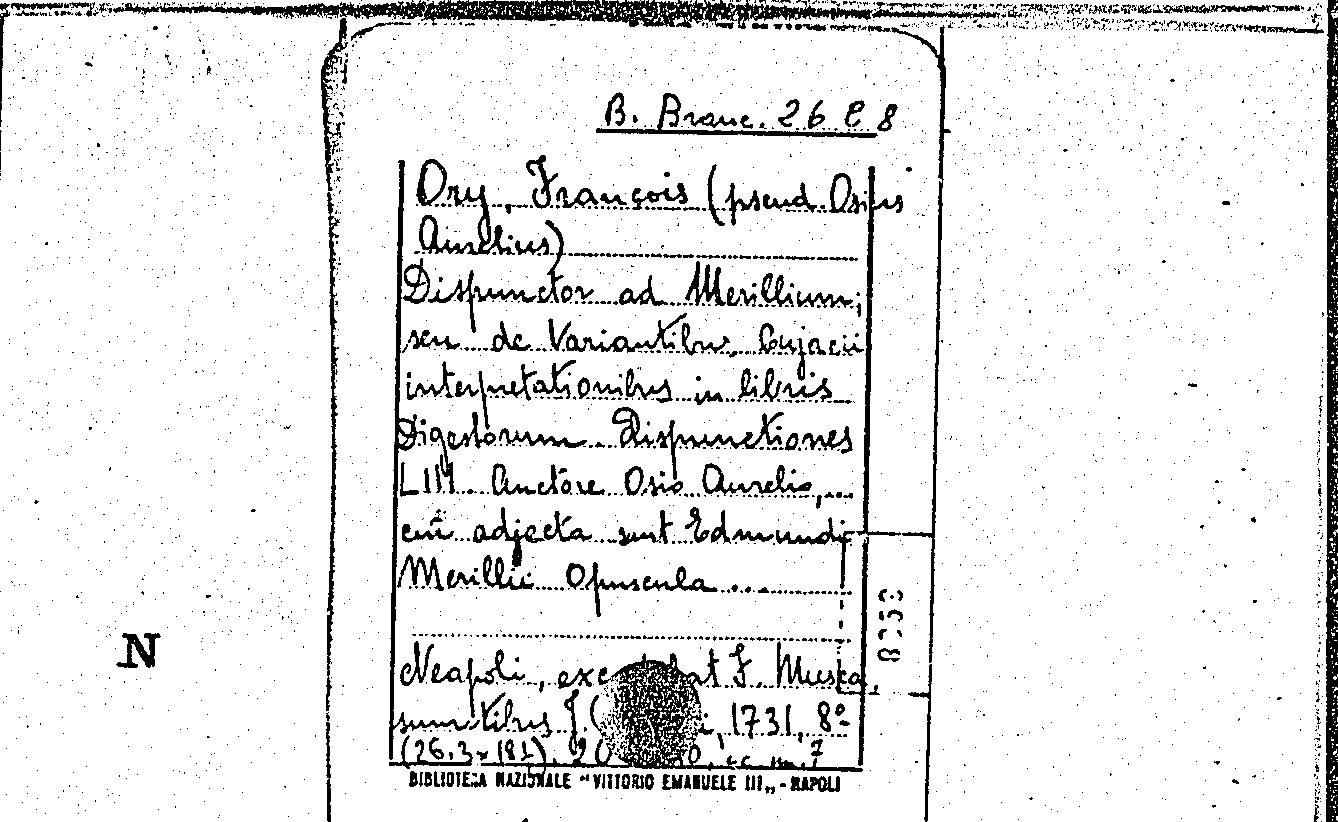 B. Branc. 26 E 8
Ory, François (pseud. Osius
Aurelius)
Dispunctor ad Merillium;
seu de Variantibus Cujacii
interpretationibus in libris
Digestorum Dispunctiones
LIII. Auctore Osio Aurelio,...
cui adjecta sunt Edmundi
Merillii Opuscula ...
N
Neapoli, F. Musca,
sumtibus J. 1731, 8º
BIBLIOTECA NAZIONALE "VITTORIO EMANUELE III„ - NAPOLI